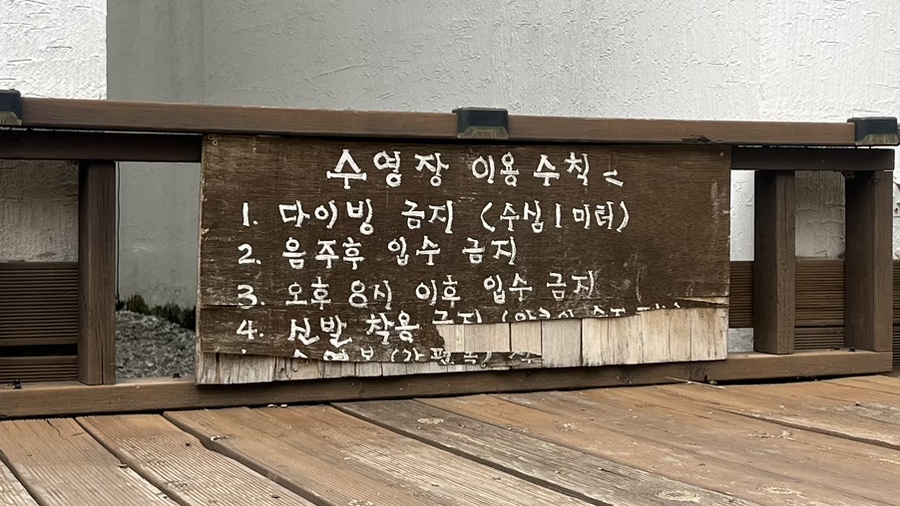 수영장 이용수칙
1. 다이빙 금지 (수심 1미터)
2. 음주후 입수 금지
3. 오후 8시 이후 입수 금지
4. 신발 착용 금지
수영복(간편복)